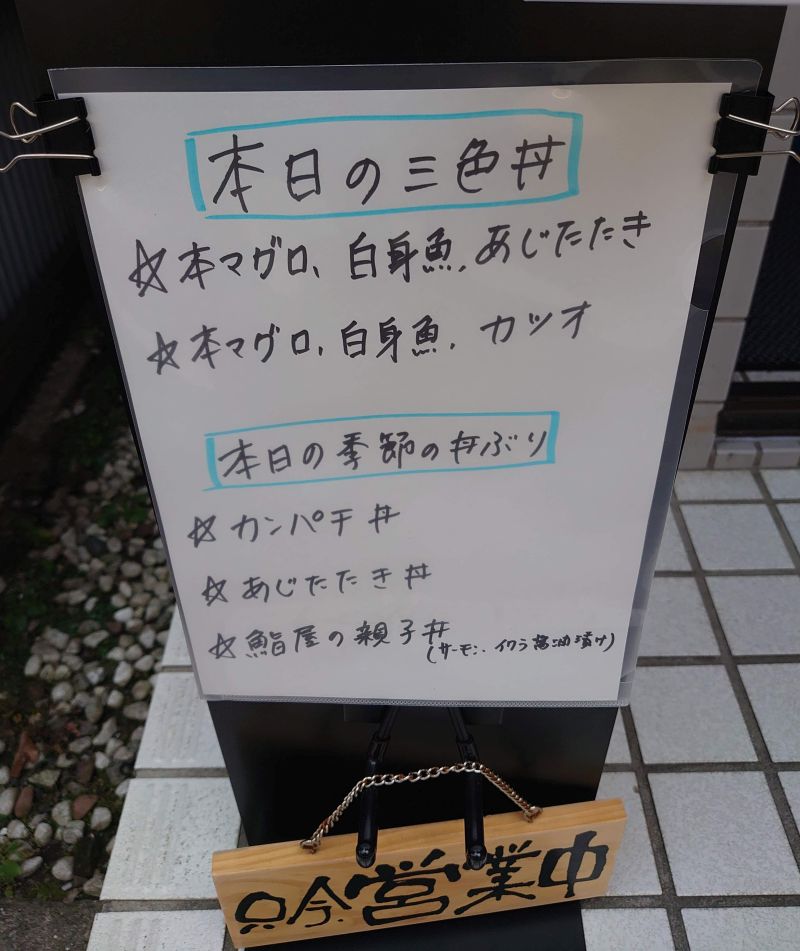 本日の三色丼
☆本マグロ、白身魚、あじたたき
☆本マグロ、白身魚、カツオ
本日の季節の丼ぶり
☆カンパチ丼
☆あじたたき丼
☆鮨屋の親子丼
(サーモン、イクラ醤油漬け)
只今営業中